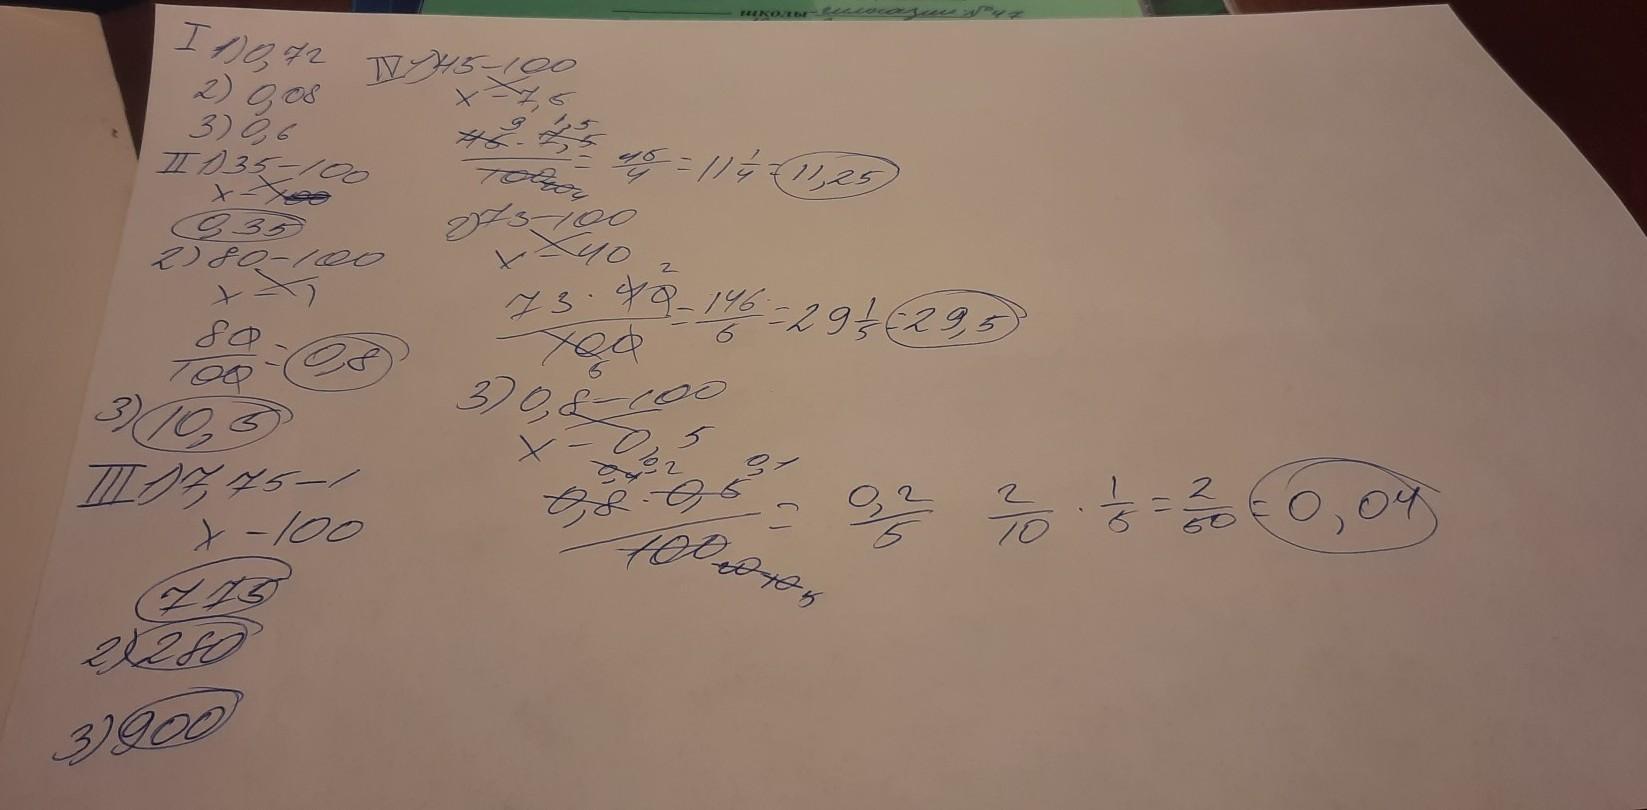 школы-гимназии №47
I 1) 0,72
2) 0,08
3) 0,6
II 1) 35-100
x-100
0,35
2) 80-100
x-1
80/100=0,8
3) 10,5
III 1) 7,75-1
x-100
775
2) 280
3) 900
IV 1) 45-100
x-7,5
9 1,5
45·7,5/100=45/4=11 1/4=11,25
2) 73-100
x-40
2
73·40/100=146/5=29 1/5=29,5
5
3) 0,8-100
x-0,5
0,4 0,2 0,1
0,8·0,5/100= 0,2/5 2/10·1/5=2/50=0,04
5